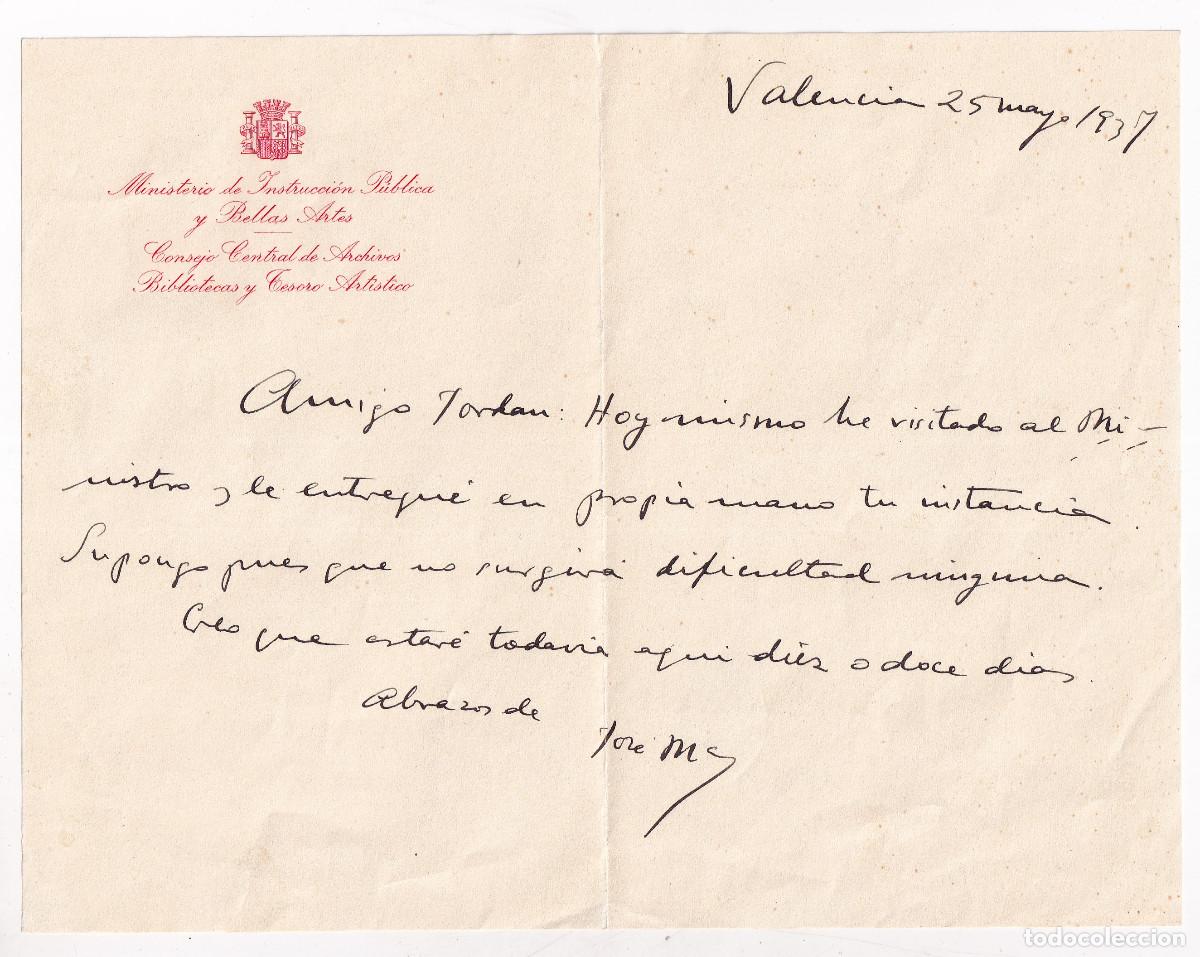 Valencia 25 mayo 1937
Ministerio de Instrucción Pública
y Bellas Artes
Consejo Central de Archivos
Bibliotecas y Tesoro Artístico
Amigo Jordan: Hoy mismo he visitado al Mi-
nistro y le entregué en propia mano tu instancia.
Supongo pues que no surgirá dificultad ninguna.
Creo que estaré todavia aqui diéz o doce dias.
Abrazos de
José Mª
todocoleccion